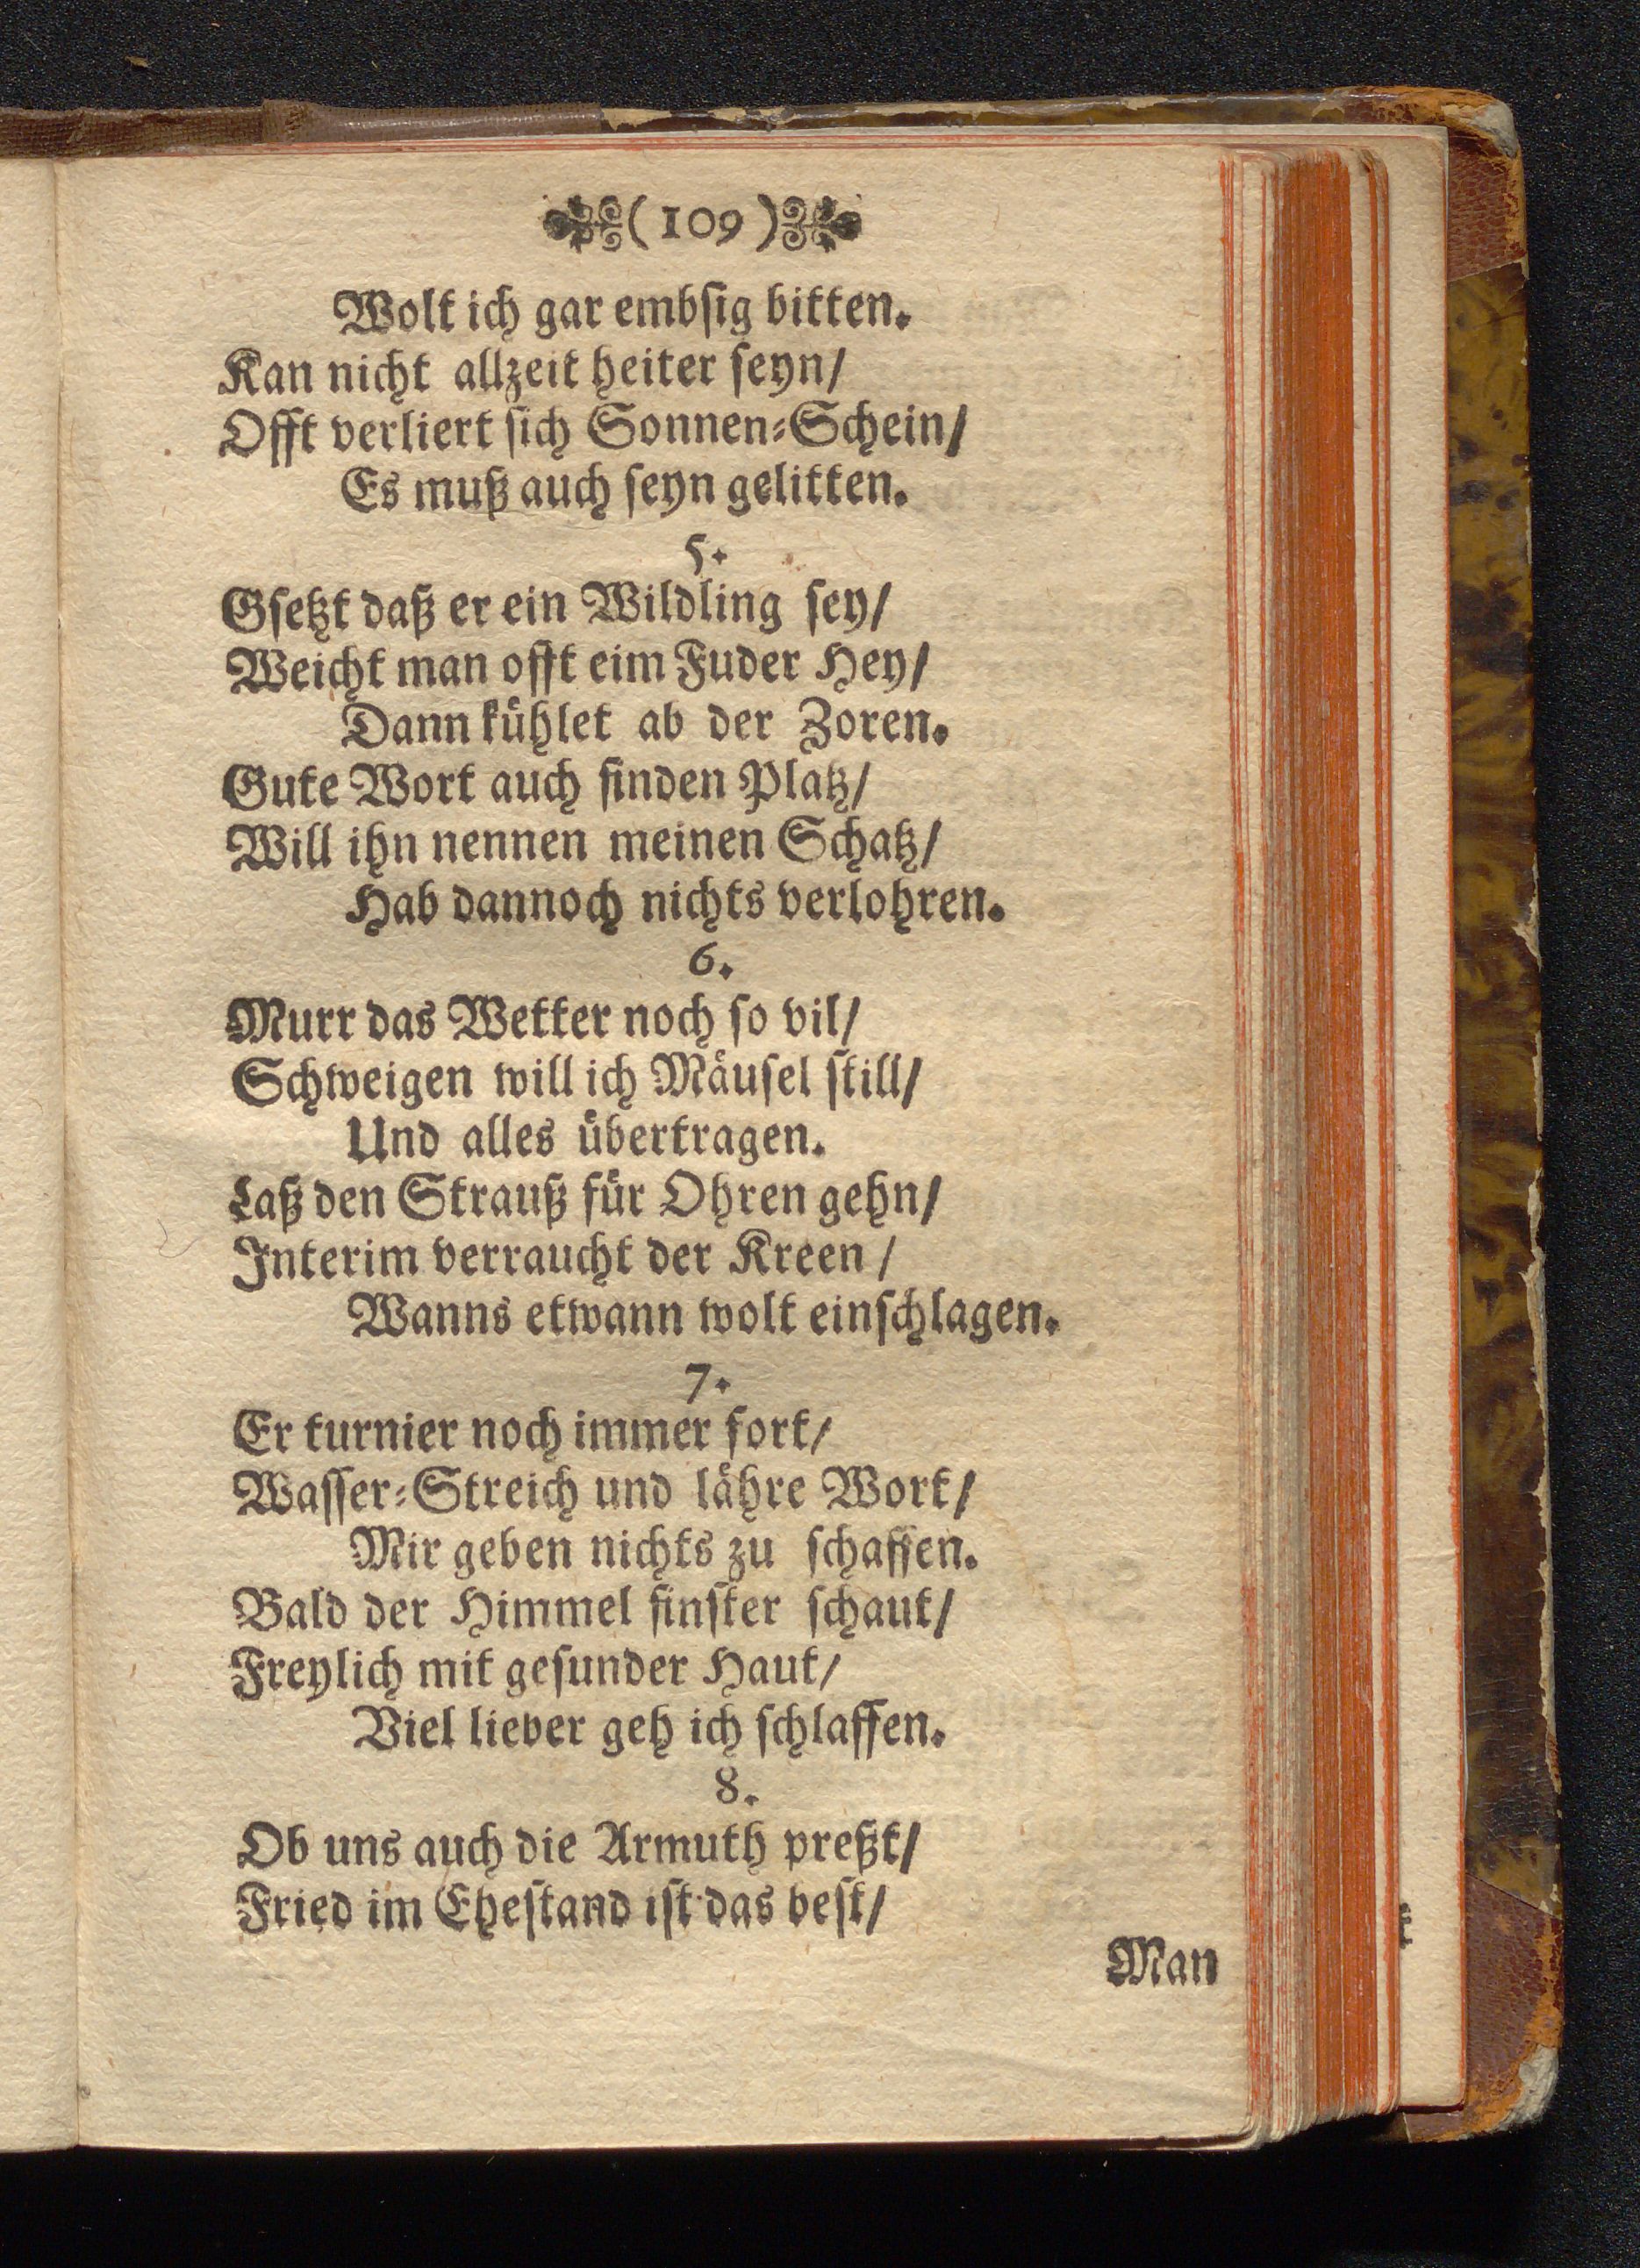 (109)
Wolt ich gar embsig bitten.
Kan nicht allzeit heiter seyn/
Offt verliert sich Sonnen-Schein/
Es muß auch seyn gelitten.
5.
Gsetzt daß er ein Wildling sey/
Weicht man offt eim Fuder Hey/
Dann kühlet ab der Zoren.
Gute Wort auch finden Platz/
Will ihn nennen meinen Schatz/
Hab dannoch nichts verlohren.
6.
Murr das Wetter noch so vil/
Schweigen will ich Mäusel still/
Und alles übertragen.
Laß den Strauß für Ohren gehn/
Interim verraucht der Kreen/
Wanns etwann wolt einschlagen.
7.
Er turnier noch immer fort/
Wasser-Streich und lähre Wort/
Mir geben nichts zu schaffen.
Bald der Himmel finster schaut/
Freylich mit gesunder Haut/
Viel lieber geh ich schlaffen.
8.
Ob uns auch die Armuth preßt/
Fried im Ehestand ist das best/
Man